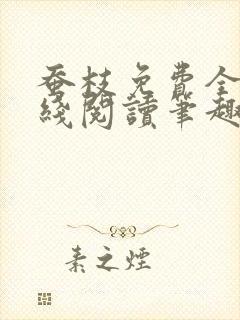 蚕枝免費全
綫閱讀筆趣
素之煙